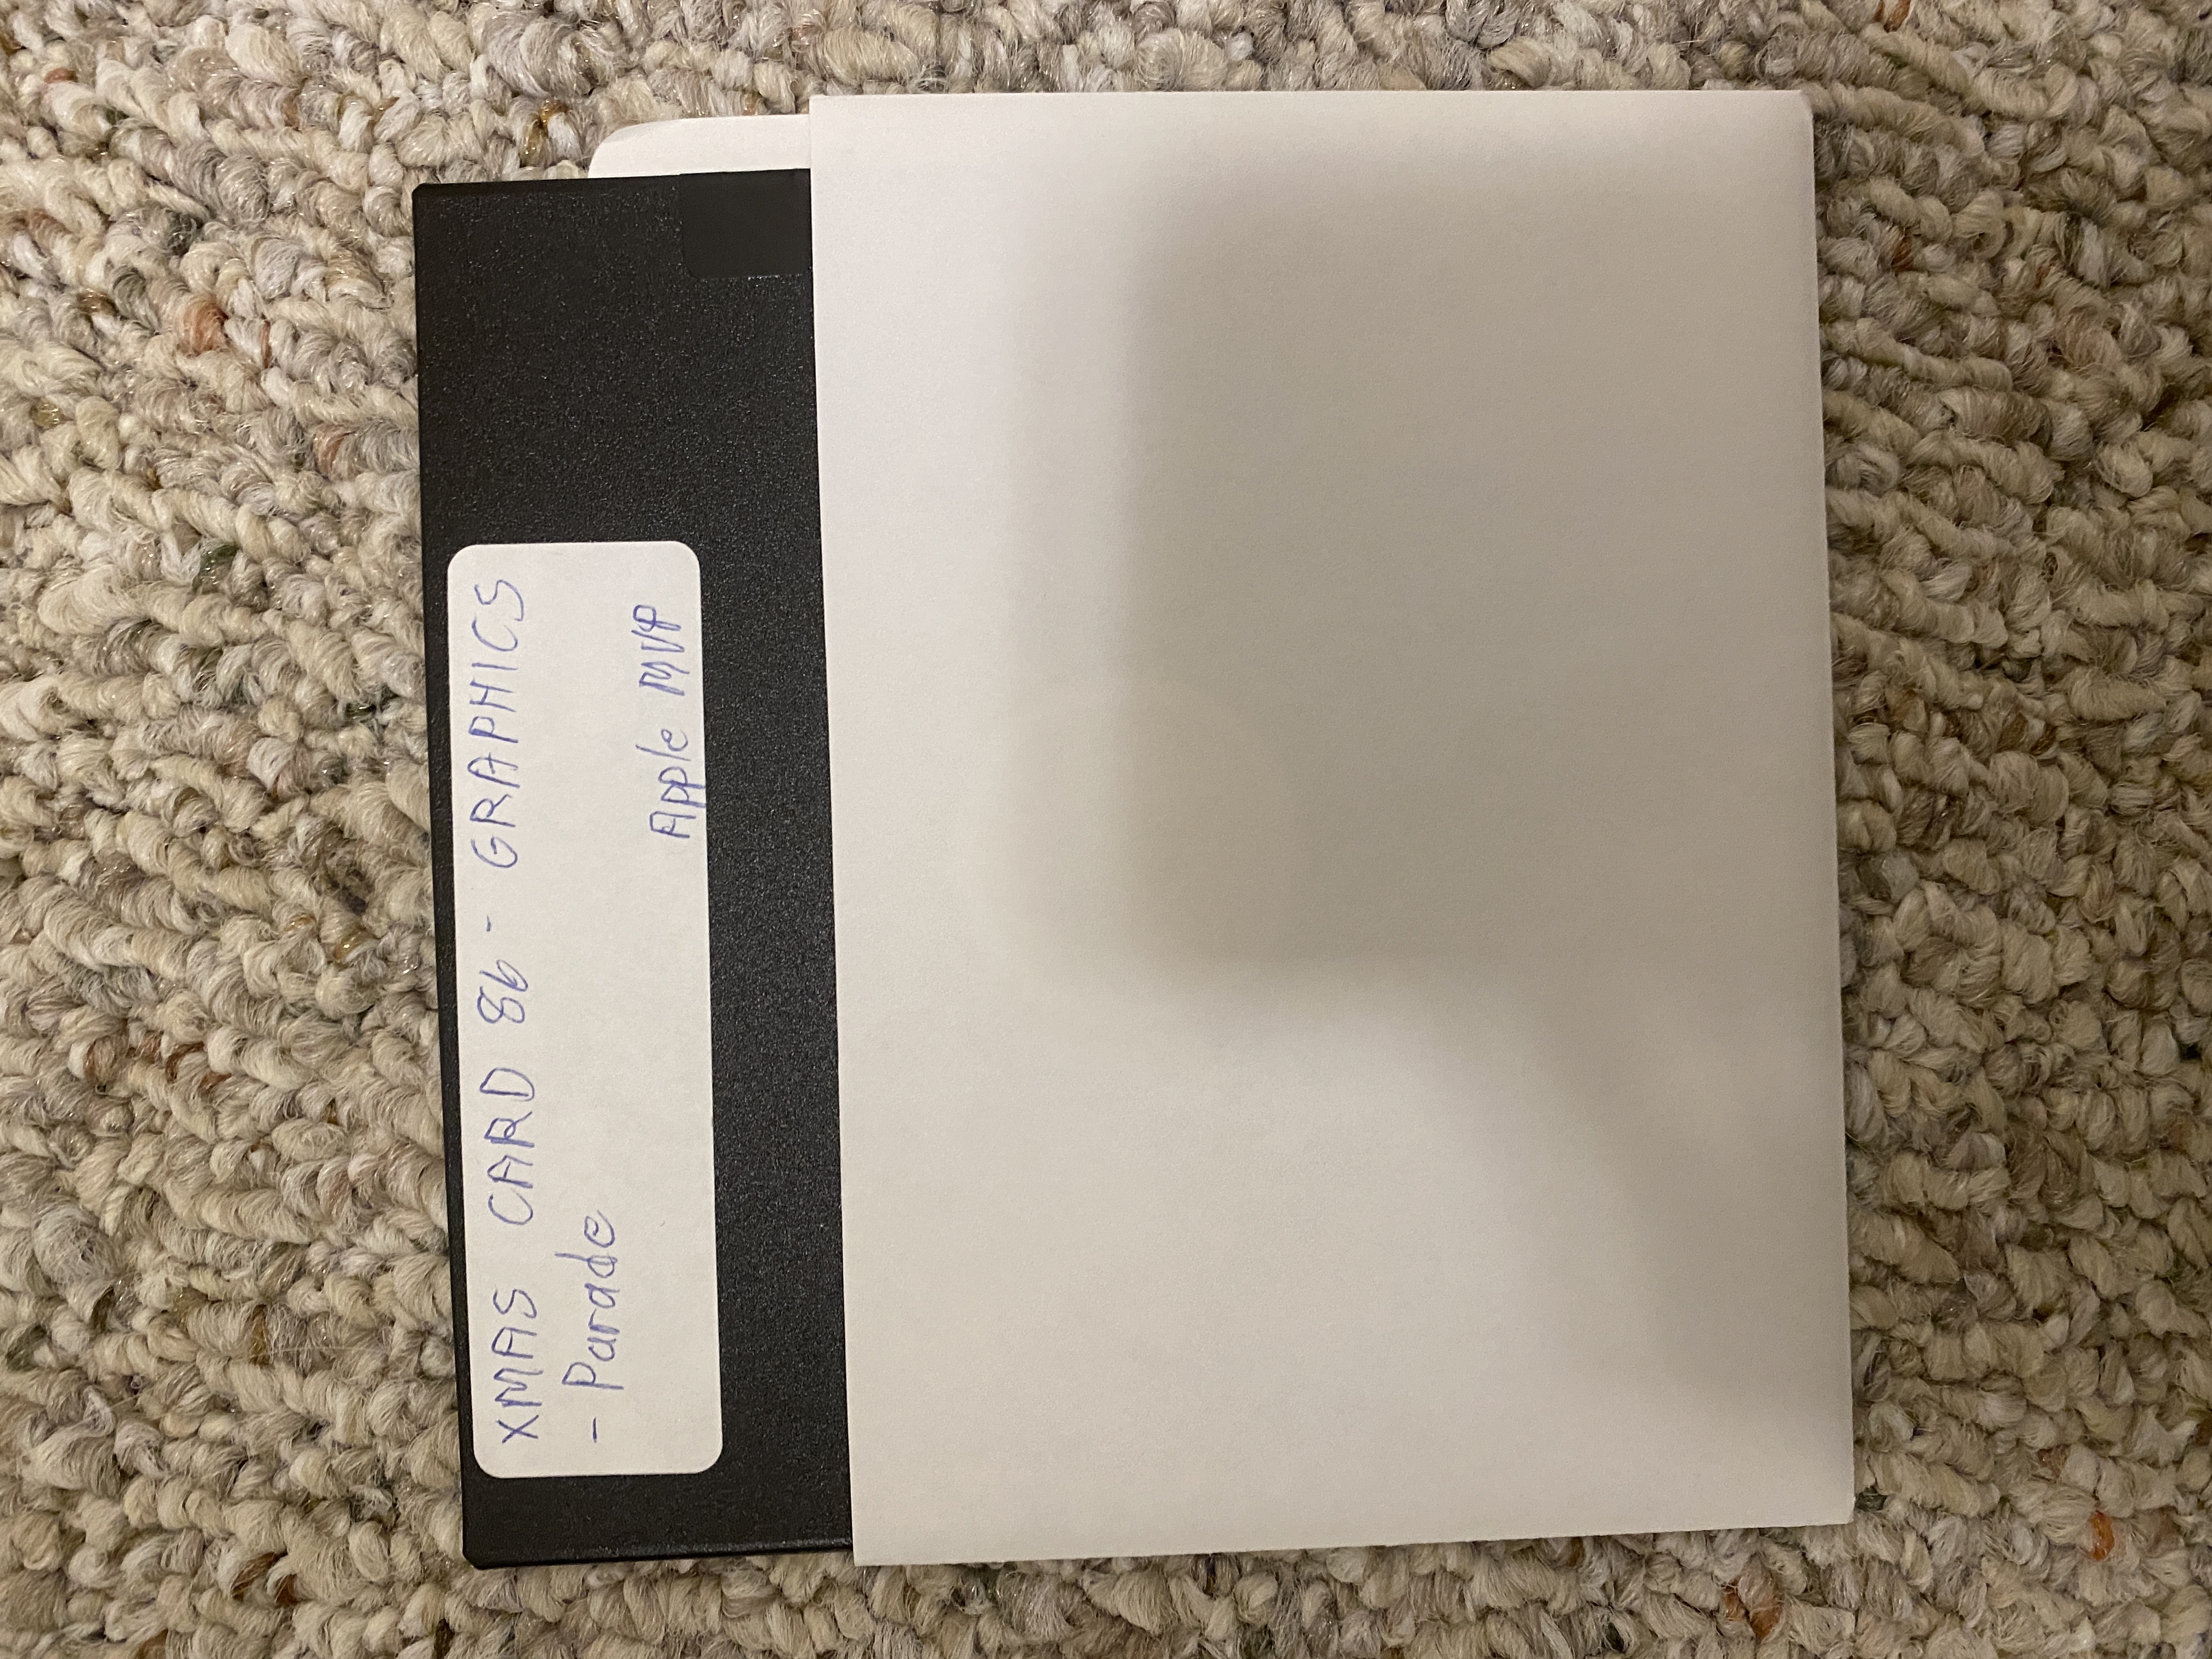 XMAS CARD 86 - GRAPHICS
- Parade
Apple MVP